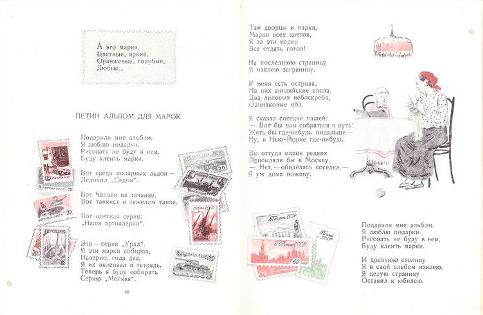 А это марки,
Цветные, яркие,
Оранжевые, голубые,
Любые...
ПЕТИН АЛЬБОМ ДЛЯ МАРОК
Подарили мне альбом.
Я люблю подарки.
Рисовать не буду в нем,
Буду клеить марки.
Вот среди полярных льдов —
Ледокол „Седов".
Вот Чапаев на тачанке,
Вот танкист в тяжелом танке.
Вот цветная серия:
„Наша артиллерия".
Это — серия „Урал".
Я эти марки собирал,
Наверно, года два,
Я их вклеивал в тетрадь.
Теперь я буду собирать
Серию „Москва".
Там дворцы и парки,
Марки всех цветов,
Я за эти марки
Все отдать готов!
На последнюю страницу
Я наклею заграницу.
У меня есть острова,
На них английские слова,
Два лиловых небоскреба,
Одинаковые оба.
Я сказал соседке нашей:
— Вот бы вам собраться в путь!
Жить бы где-нибудь подальше —
Ну, в Нью-Йорке где-нибудь,
Вы оттуда марок редких
Присылали бы в Москву.
— Нет, — обиделась соседка, —
Я уж дома поживу.
Подарили мне альбом.
Я люблю подарки.
Рисовать не буду в нем,
Буду клеить марки.
И древнюю столицу
Я в свой альбом вклею,
Я целую страницу
Оставил к юбилею.